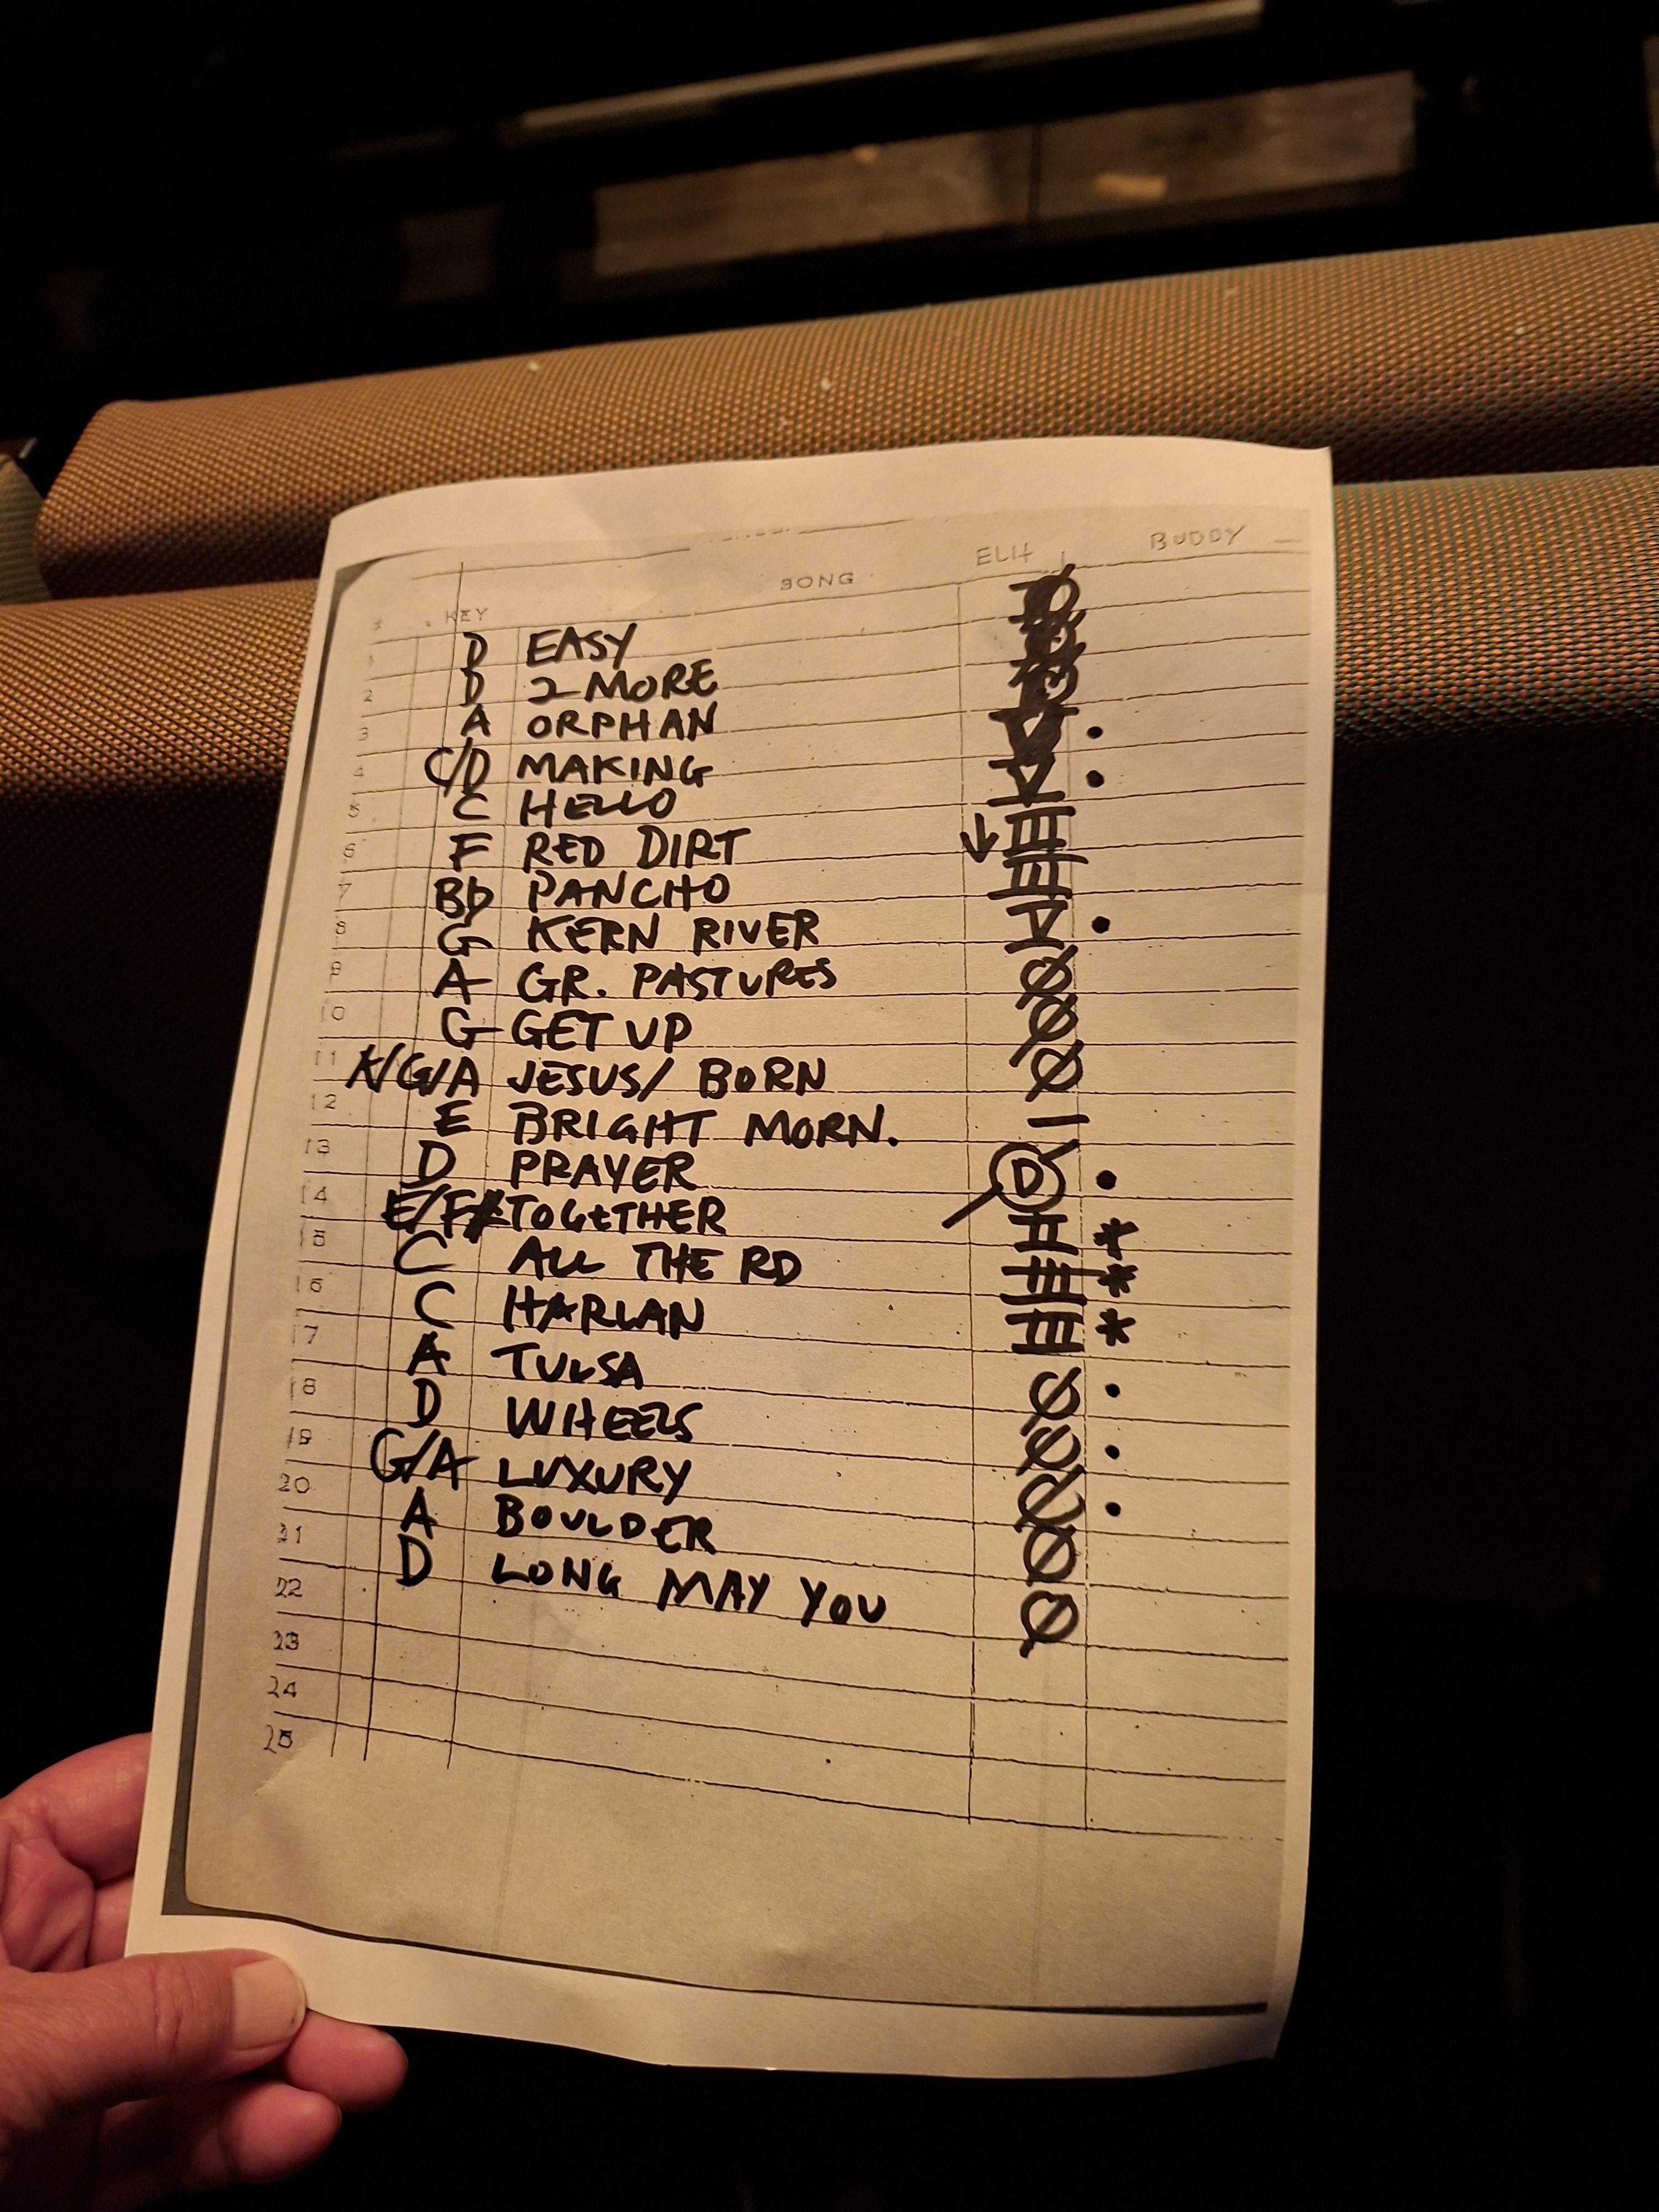 ELH BUDDY
# KEY SONG
1 D EASY
2 D 2 MORE
3 A ORPHAN •
4 C/D MAKING •
5 C HELLO
6 F RED DIRT
7 Bb PANCHO
8 G KERN RIVER •
9 A GR. PASTURES
10 G GET UP
11 K/G/A JESUS/ BORN
12 E BRIGHT MORN.
13 D PRAYER D •
14 E/F# TOGETHER *
15 C ALL THE RD *
16 C HARLAN *
17 A TULSA •
18 D WHEELS •
19 G/A LUXURY •
20 A BOULDER
21 D LONG MAY YOU
22
23
24
25